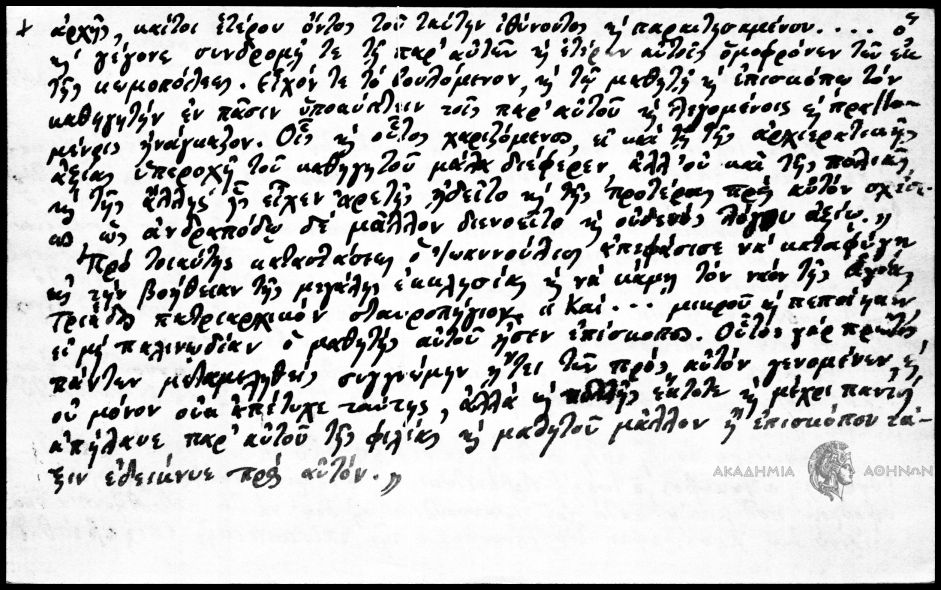 + ἀρχῆς, καίτοι ἑτέρου ὄντος τοῦ ταύτην ἰθύνοντος κ παραιτησαμένου.... ὃ
κ γέγονε συνδρομῇ τε τῇ παρ' αὐτῶν κ ἑτέρων αὐτοῖς ὁμοφρόνων τῶν ἐκ
τῆς κωμοπόλεως. Εἶχόν τε τὸ βουλόμενον, κ τῷ μαθητῇ κ ἐπισκόπῳ τὸν
καθηγητὴν ἐν πᾶσιν ὑποκύπτειν τοῖς παρ' αὐτοῦ κ λεγομένοις κ πραττο-
μένοις ἠνάγκαζον. Οἷς κ οὗτος χαριζόμενος, εἰ καὶ τῇ τῆς ἀρχιερατικῆς
ἀξίας ὑπεροχῇ τοῦ καθηγητοῦ μάλα διέφερεν, ἀλλ' οὐ καὶ τῆς πολιᾶς
κ τῆς ἄλλης ἧς εἶχεν ἀρετῆς ᾐδεῖτο κ τῆς προτέρας πρὸς αὐτὸν σχέσε-
ως ὡς ἀνδραπόδῳ δὲ μᾶλλον διενοεῖτο κ οὐδενὸς λόγου ἀξίῳ.»
Πρὸ τοιαύτης καταστάσεως ὁ Ἰωαννούλιος ἀπεφάσισε νὰ καταφύγῃ
εἰς τὴν βοήθειαν τῆς μεγάλης ἐκκλησίας κ νὰ κάμῃ τὸν ναὸν τῆς Ἁγίας
Τριάδος πατριαρχικὸν σταυροπήγιον. «Καὶ... μικροῦ κ πεποίηκεν
εἰ μὴ παλινῳδίαν ὁ μαθητὴς αὐτοῦ ᾖσεν ἐπίσκοπος. Οὗτος γὰρ πρῶτος
πάντων μεταμεληθεὶς συγγνώμην ᾔτει τῶν πρὸς αὐτὸν γενομένων, κ
οὐ μόνον οὐκ ἀπέτυχε ταύτης, ἀλλὰ κ πολλῆς ἔκτοτε κ μέχρι παντὸς
ἀπήλαυε παρ' αὐτοῦ τῆς φιλίας κ μαθητοῦ μᾶλλον ἢ ἐπισκόπου τά-
ξιν ἐδείκνυε πρὸς αὐτόν.»
ΑΚΑΔΗΜΙΑ ΑΘΗΝΩΝ